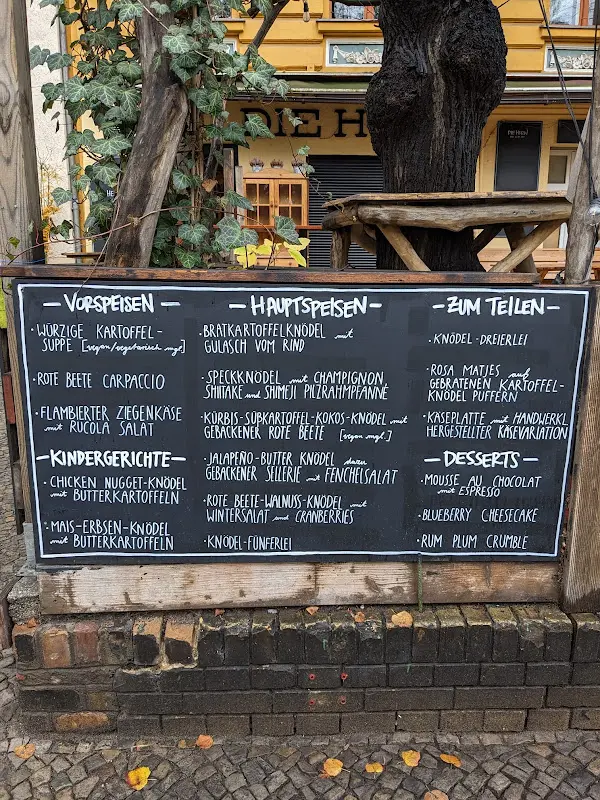 DIE H
— VORSPEISEN —
• WÜRZIGE KARTOFFEL-
SUPPE [vegan/vegetarisch mgl]
• ROTE BEETE CARPACCIO
• FLAMBIERTER ZIEGENKÄSE
mit RUCOLA SALAT
— KINDERGERICHTE —
• CHICKEN NUGGET-KNÖDEL
mit BUTTERKARTOFFELN
• MAIS-ERBSEN-KNÖDEL
mit BUTTERKARTOFFELN
— HAUPTSPEISEN —
• BRATKARTOFFELKNÖDEL mit
GULASCH VOM RIND
• SPECKKNÖDEL mit CHAMPIGNON,
SHIITAKE und SHIMEJI PILZRAHMPFANNE
• KÜRBIS-SÜßKARTOFFEL-KOKOS-KNÖDEL mit
GEBACKENER ROTE BEETE [vegan mgl.]
• JALAPEÑO-BUTTER KNÖDEL dazu
GEBACKENER SELLERIE mit FENCHELSALAT
• ROTE BEETE-WALNUSS-KNÖDEL mit
WINTERSALAT und CRANBERRIES
• KNÖDEL-FÜNFERLEI
— ZUM TEILEN —
• KNÖDEL-DREIERLEI
• ROSA MATJES auf
GEBRATENEN KARTOFFEL-
KNÖDEL PUFFERN
• KÄSEPLATTE mit HANDWERKL.
HERGESTELLTER KÄSEVARIATION
— DESSERTS —
• MOUSSE AU CHOCOLAT
mit ESPRESSO
• BLUEBERRY CHEESECAKE
• RUM PLUM CRUMBLE